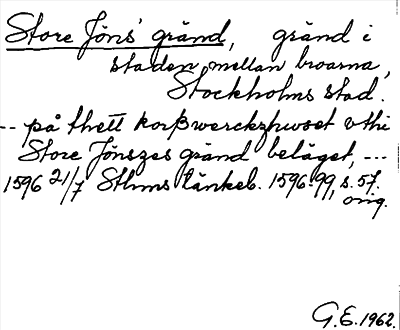 Store Jöns' gränd, gränd i
staden mellan broarna,
Stockholms stad.
-- på thett korßwerckzhwset vthi
Store Jönszes gränd beläget, ---
1596 21/7 Sthms tänkeb. 1596-99, s. 57.
orig.
G.E. 1962.